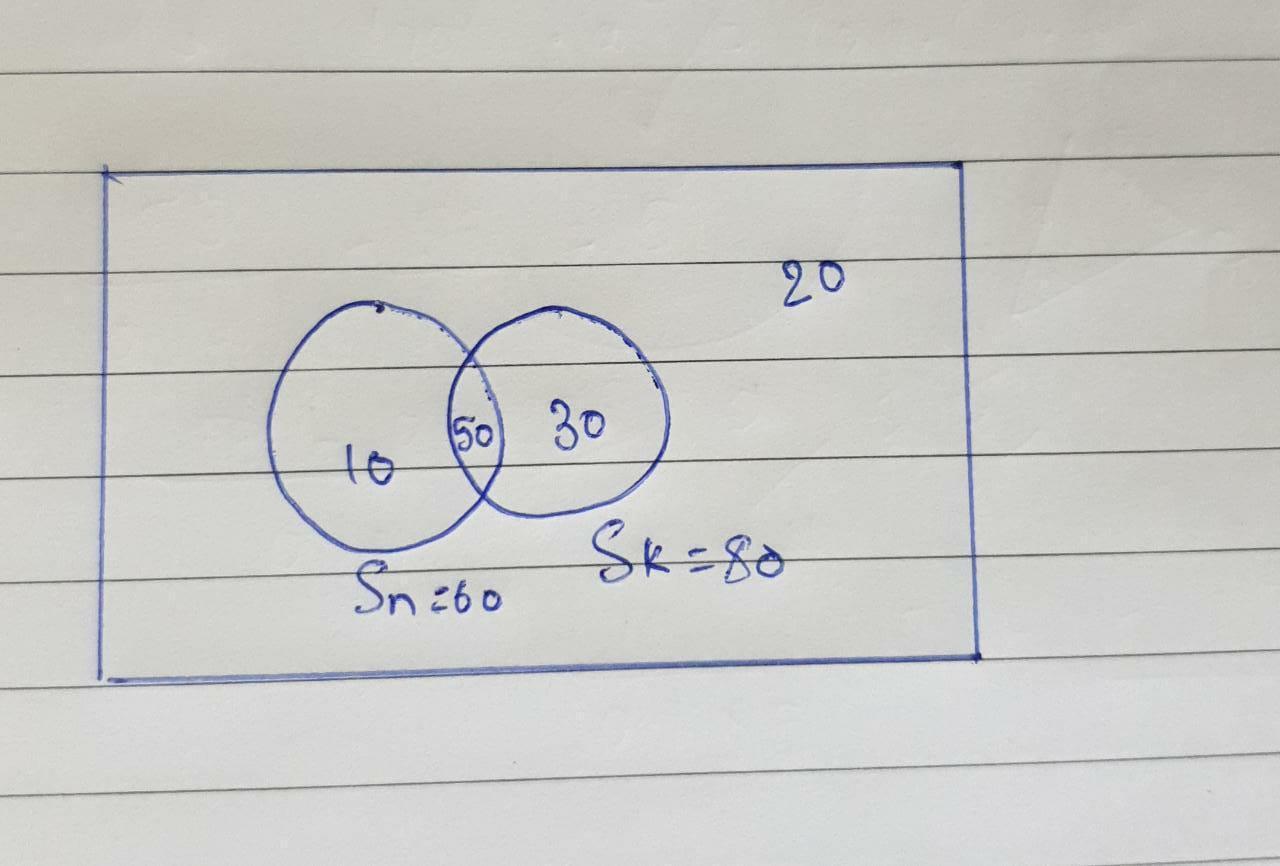 20
10 50 30
Sn=60
Sk=80